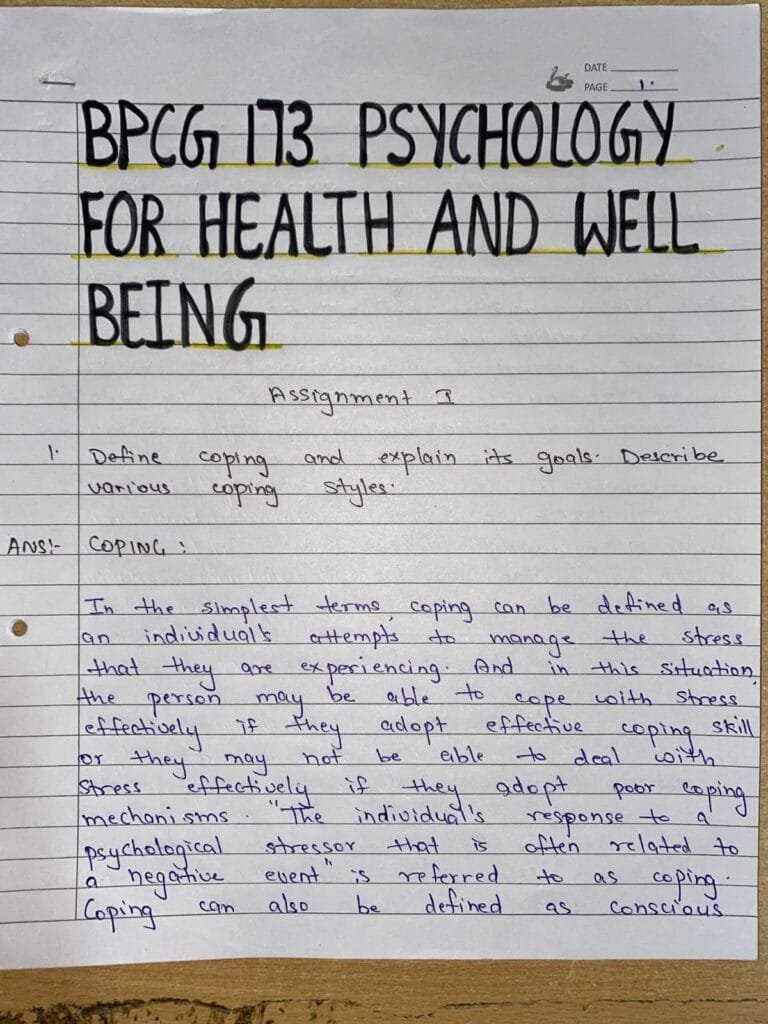 DATE
PAGE 1.
BPCG 173 PSYCHOLOGY
FOR HEALTH AND WELL
BEING
Assignment I
1. Define coping and explain its goals. Describe
various coping styles.
ANS:- COPING :
In the simplest terms, coping can be defined as
an individual's attempts to manage the stress
that they are experiencing. And in this situation,
the person may be able to cope with stress
effectively if they adopt effective coping skill
or they may not be able to deal with
stress effectively if they adopt poor coping
mechanisms. "The individual's response to a
psychological stressor that is often related to
a negative event" is referred to as coping.
Coping can also be defined as conscious